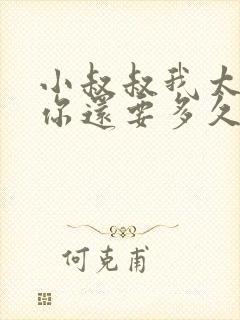 小叔叔我太
你還要多久
何克甫